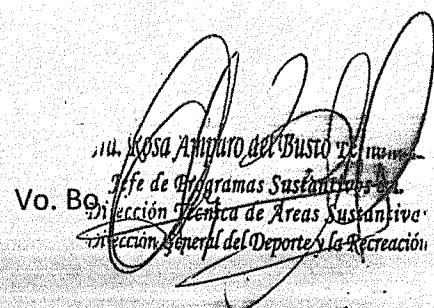 Rosa Amparo del Busto
Jefe de Programas Sustantivos
Vo. Bo.
Dirección Técnica de Áreas Sustantivas
Dirección General del Deporte y la Recreación